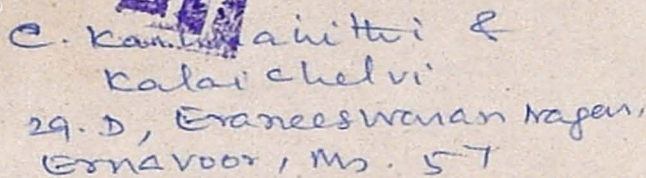 C. &
Kalaichelvi
29. D, Eraneeswaran Nagar,
Ernavoor, Ms. 57